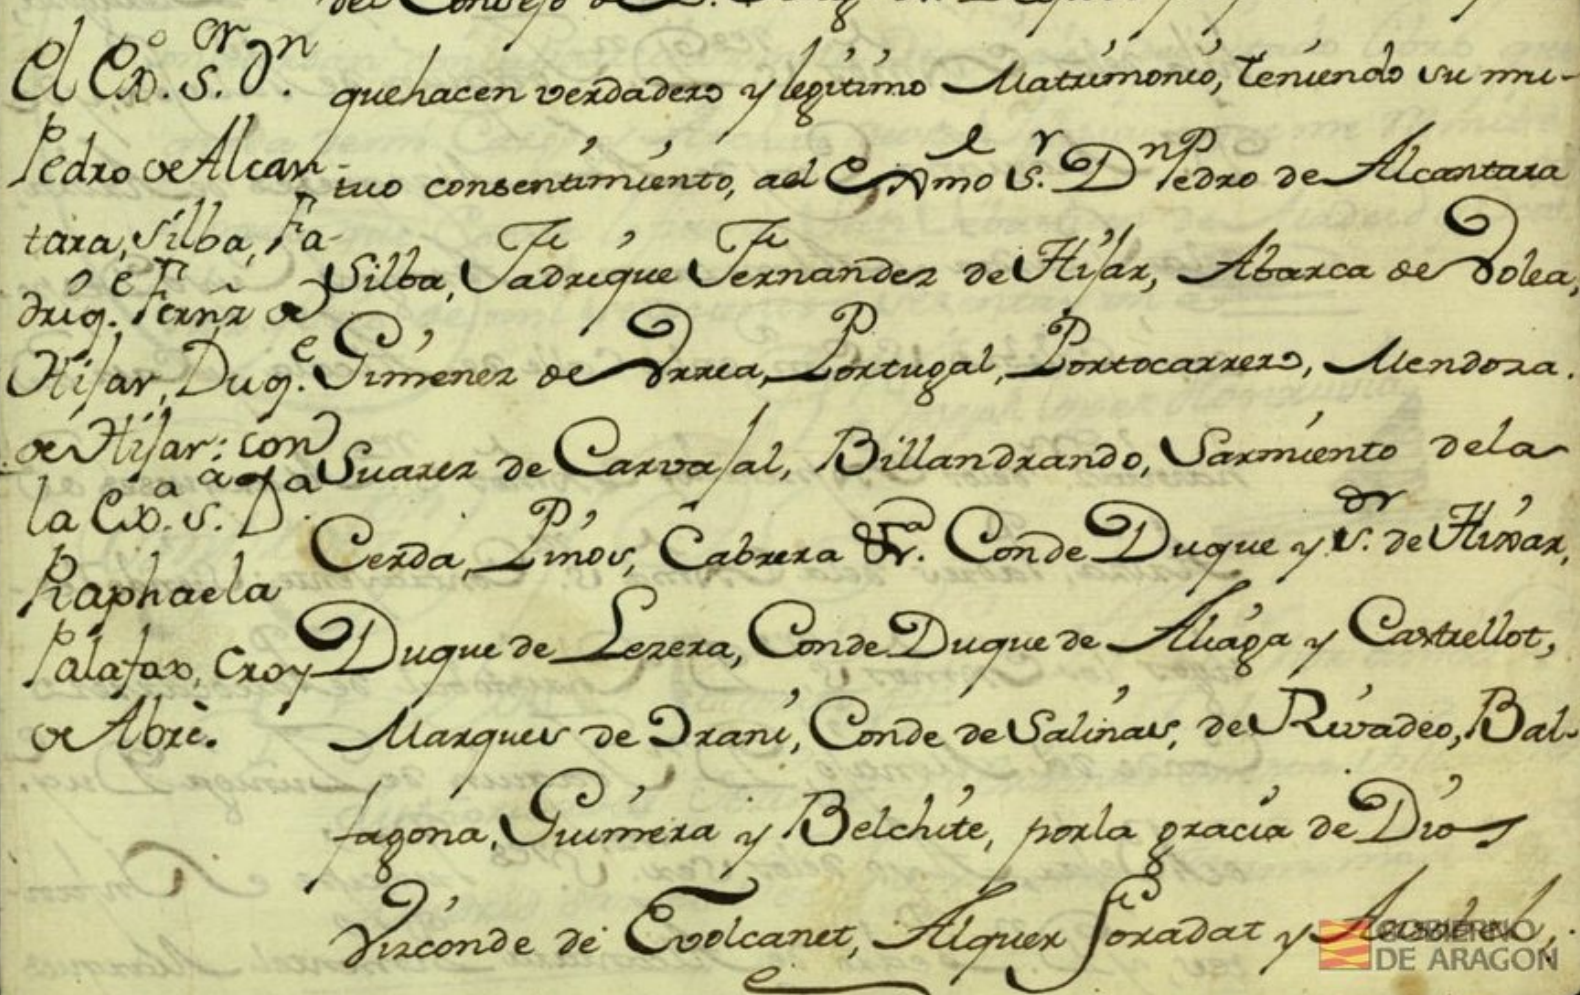 El Ex.º S.ºʳ Dⁿ.
Pedro de Alcan-
tara, Silba, Fa-
driq.ᵉ Fern̂z de
Hijar, Duq.ᵉ
de Hijar: con
la Ex.ª S.ª D.ª
Raphaela
Palafax, Croy
de Abrè.
que hacen verdadero y legitimo Matrimonio, teniendo su mu-
tuo consentimiento, ael Exmo Sʳ. Dⁿ Pedro de Alcantara
Silba, Fadrique Fernandez de Hijar, Abarca de Bolea,
Gimenez de Vrrea, Portugal, Portocarrero, Mendoza.
Suarez de Carvajal, Billandrando, Sarmiento dela
Cerda, Pinos, Cabrera &ª. Conde Duque y Sᵒʳ. de Hixar,
Duque de Lezera, Conde Duque de Aliaga y Castrellot,
Marques de Orani, Conde de Salinas, de Rivadeo, Bal-
fagona, Guimera y Belchite, por la gracia de Dios
Vizconde de Evolcanet, Alquer Foradat y
GOBIERNO
DE ARAGON